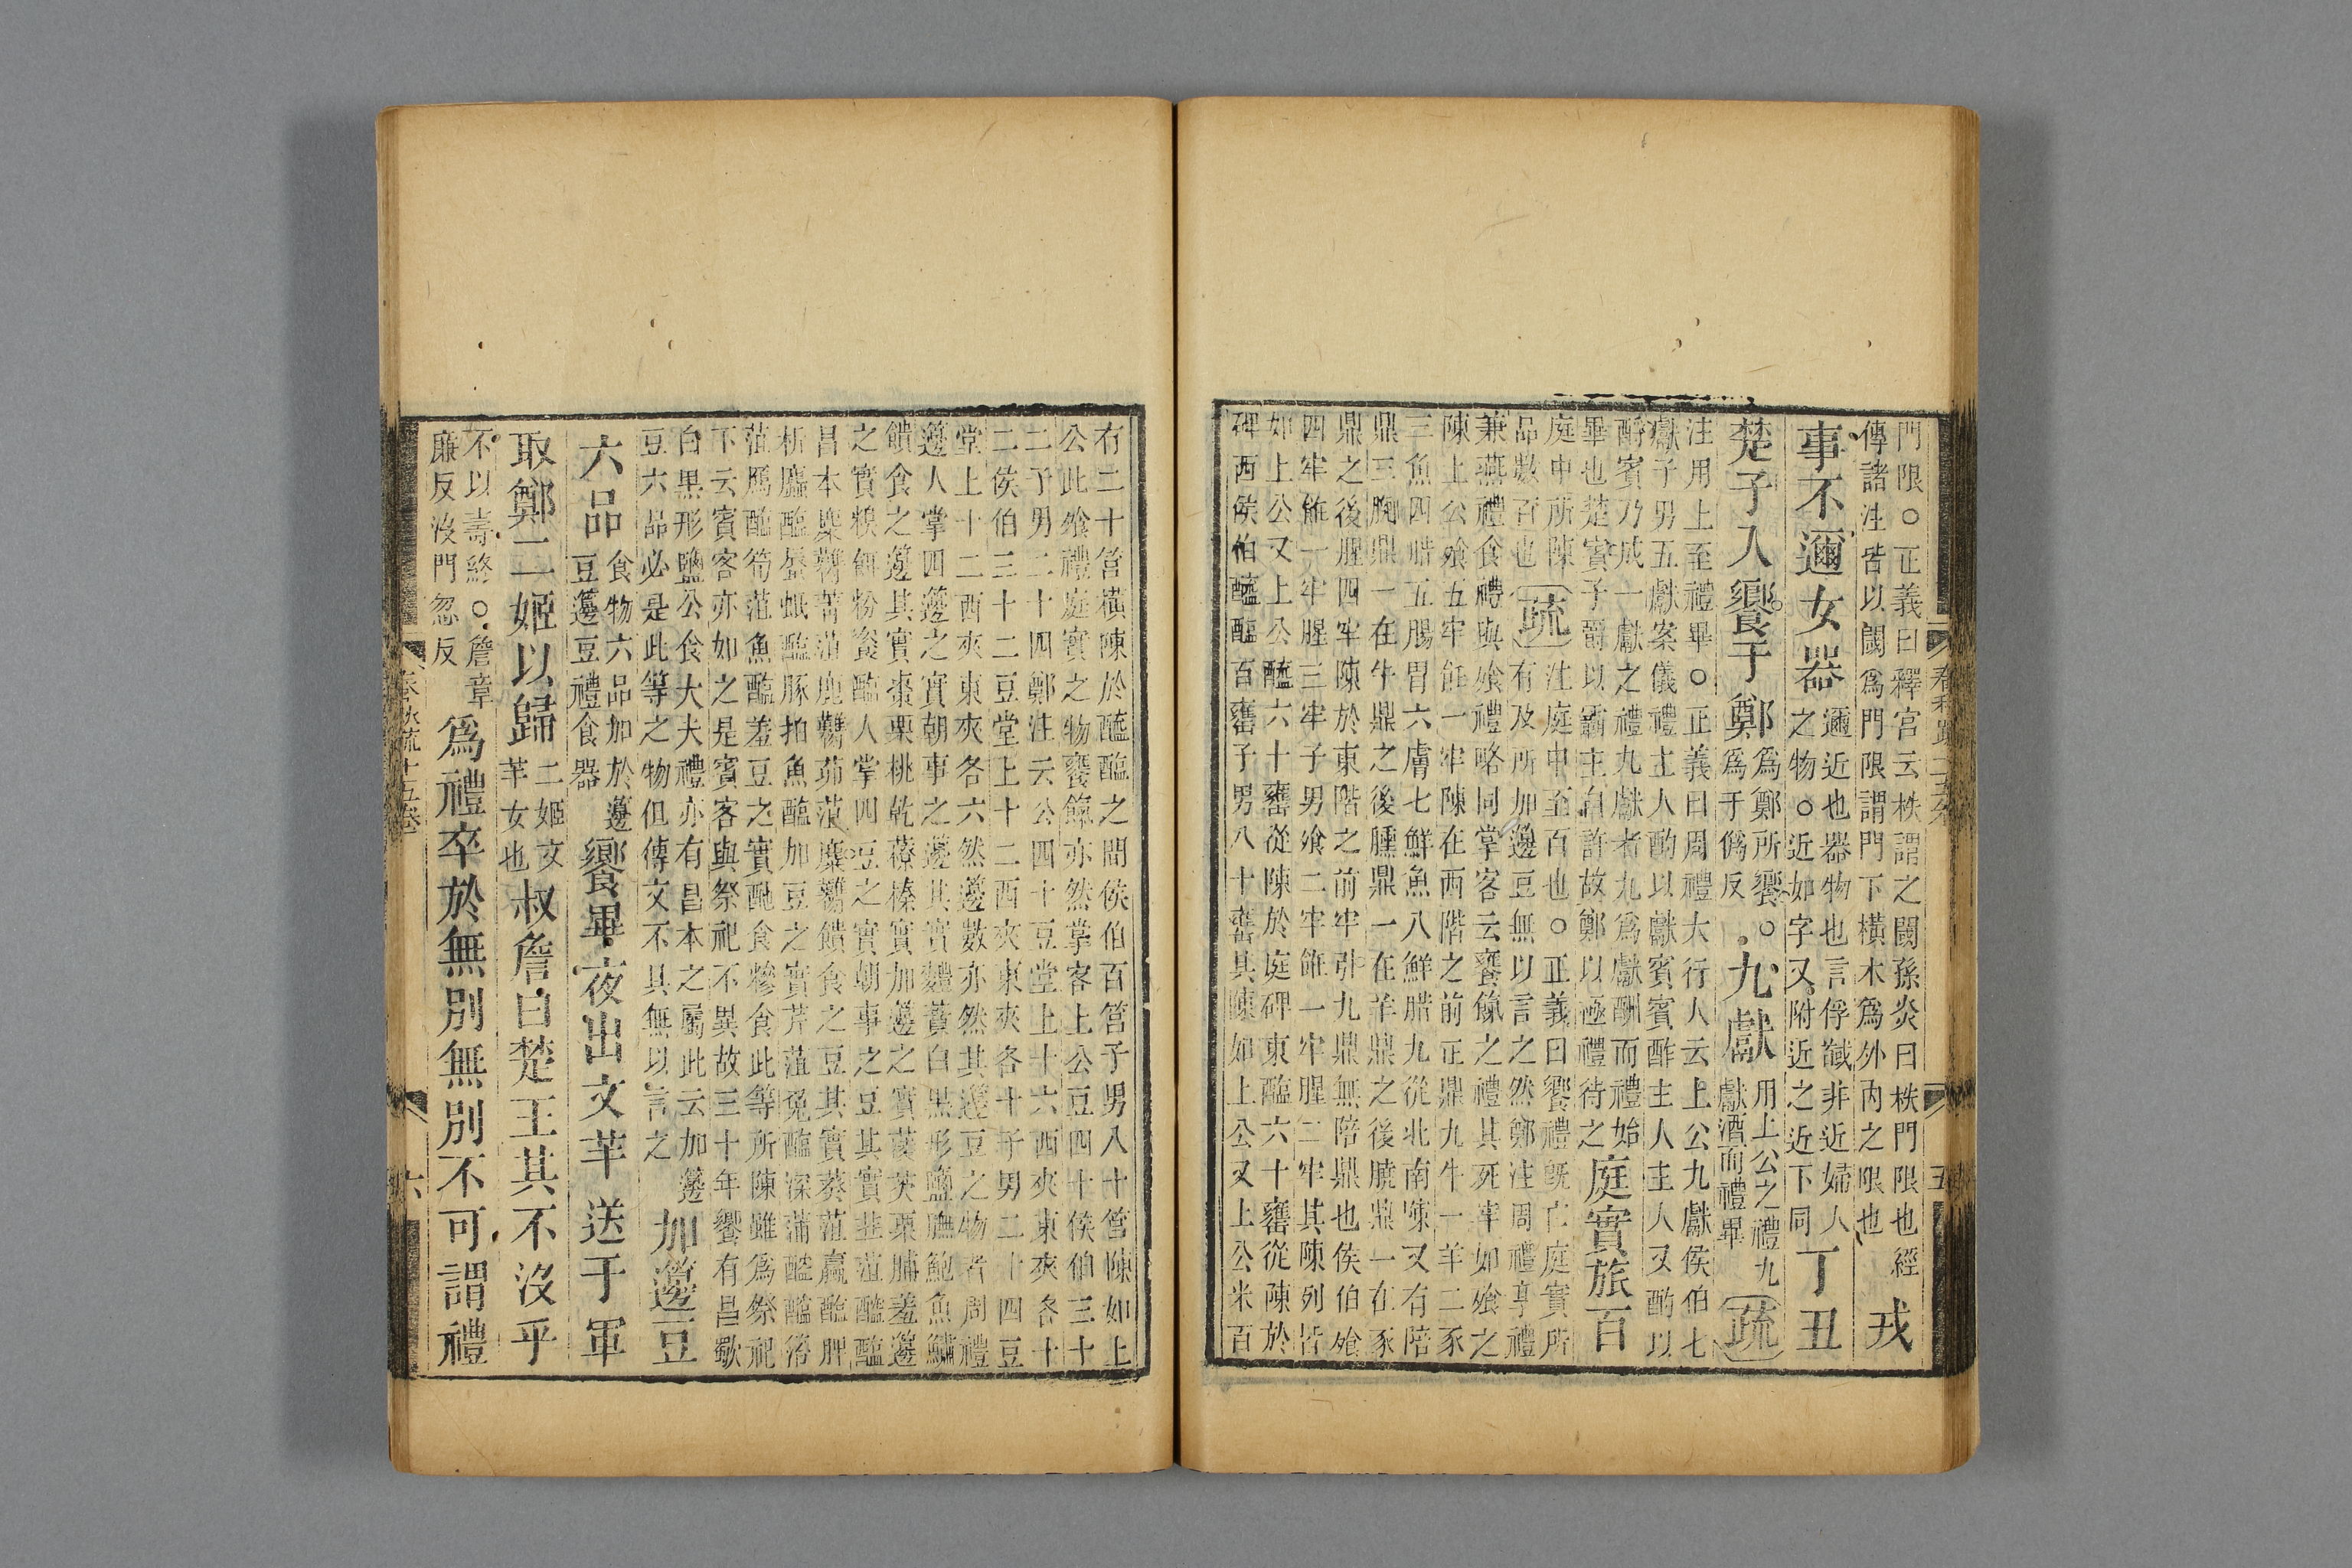 門限○正義曰釋宮云柣謂之閾孫炎曰柣門限也經
傳諸注皆以閾爲門限謂門下橫木爲外內之限也
戎
事不邇女器
邇近也器物也言俘馘非近婦人
之物○近如字又附近之近下同
丁丑
楚子入饗于鄭
爲鄭所饗○
爲于僞反
九獻
用上公之禮九
獻酒而禮畢
疏
注用上至禮畢○正義曰周禮大行人云上公九獻侯伯七
獻子男五獻案儀禮主人酌以獻賓賓酢主人主人又酌以
酬賓乃成一獻之禮九獻者九爲獻酬而禮始
畢也楚實子爵以霸主自許故鄭以極禮待之
庭實旅百
庭中所陳
品數百也
疏
注庭中至百也○正義曰饗禮旣亡庭實所
有及所加籩豆無以言之然鄭注周禮享禮
兼燕禮食禮與飧禮略同掌客云饔餼之禮其死牢如飧之
陳上公飧五牢飪一牢陳在西階之前正鼎九牛一羊二豕
三魚四腊五腸胃六膚七鮮魚八鮮腊九從北南陳又有陪
鼎三膷鼎一在牛鼎之後臐鼎一在羊鼎之後膮鼎一在豕
鼎之後腥四牢陳於東階之前牢引九鼎無陪鼎也侯伯飧
四牢飪一牢腥三牢子男飧二牢飪一牢腥二牢其陳列皆
如上公又上公醯六十罋從陳於庭碑東醢六十罋從陳於
碑西侯伯醯醢百罋子男八十罋其陳如上公又上公米百
有二十筥橫陳於醯醢之間侯伯百筥子男八十筥陳如上
公此飧禮庭實之物饔餼亦然掌客上公豆四十侯伯三十
二子男二十四鄭注云公四十豆堂上十六西夾東夾各十
二侯伯三十二豆堂上十二西夾東夾各十子男二十四豆
堂上十二西夾東夾各六然籩數亦然其籩豆之物者周禮
籩人掌四籩之實朝事之籩其實麷蕡白黑形鹽膴鮑魚鱐
饋食之籩其實棗栗桃乾䕩榛實加籩之實蔆芡栗脯羞籩
之實糗餌粉餈醢人掌四豆之實朝事之豆其實韭菹醓醢
昌本麋臡菁菹鹿臡茆菹麋臡饋食之豆其實葵菹蠃醢脾
析蠯醢蜃蚳醢豚拍魚醢加豆之實芹菹兔醢深蒲醓醢箈
菹鴈醢筍菹魚醢羞豆之實酏食糝食此等所陳雖爲祭祀
下云賓客亦如之是賓客與祭祀不異故三十年饗有昌歜
白黑形鹽公食大夫禮亦有昌本之屬此云加籩
豆六品必是此等之物但傳文不具無以言之
加籩豆
六品
食物六品加於籩
豆籩豆禮食器
饗畢夜出文芈送于軍
取鄭二姬以歸
二姬文
芈女也
叔詹曰楚王其不沒乎
不以壽終○詹章
廉反沒門忽反
爲禮卒於無別無別不可謂禮
春秋疏十五卷
六